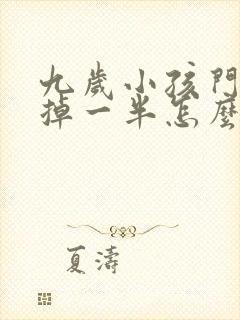 九歲小孩門
掉一半怎麼
夏濤